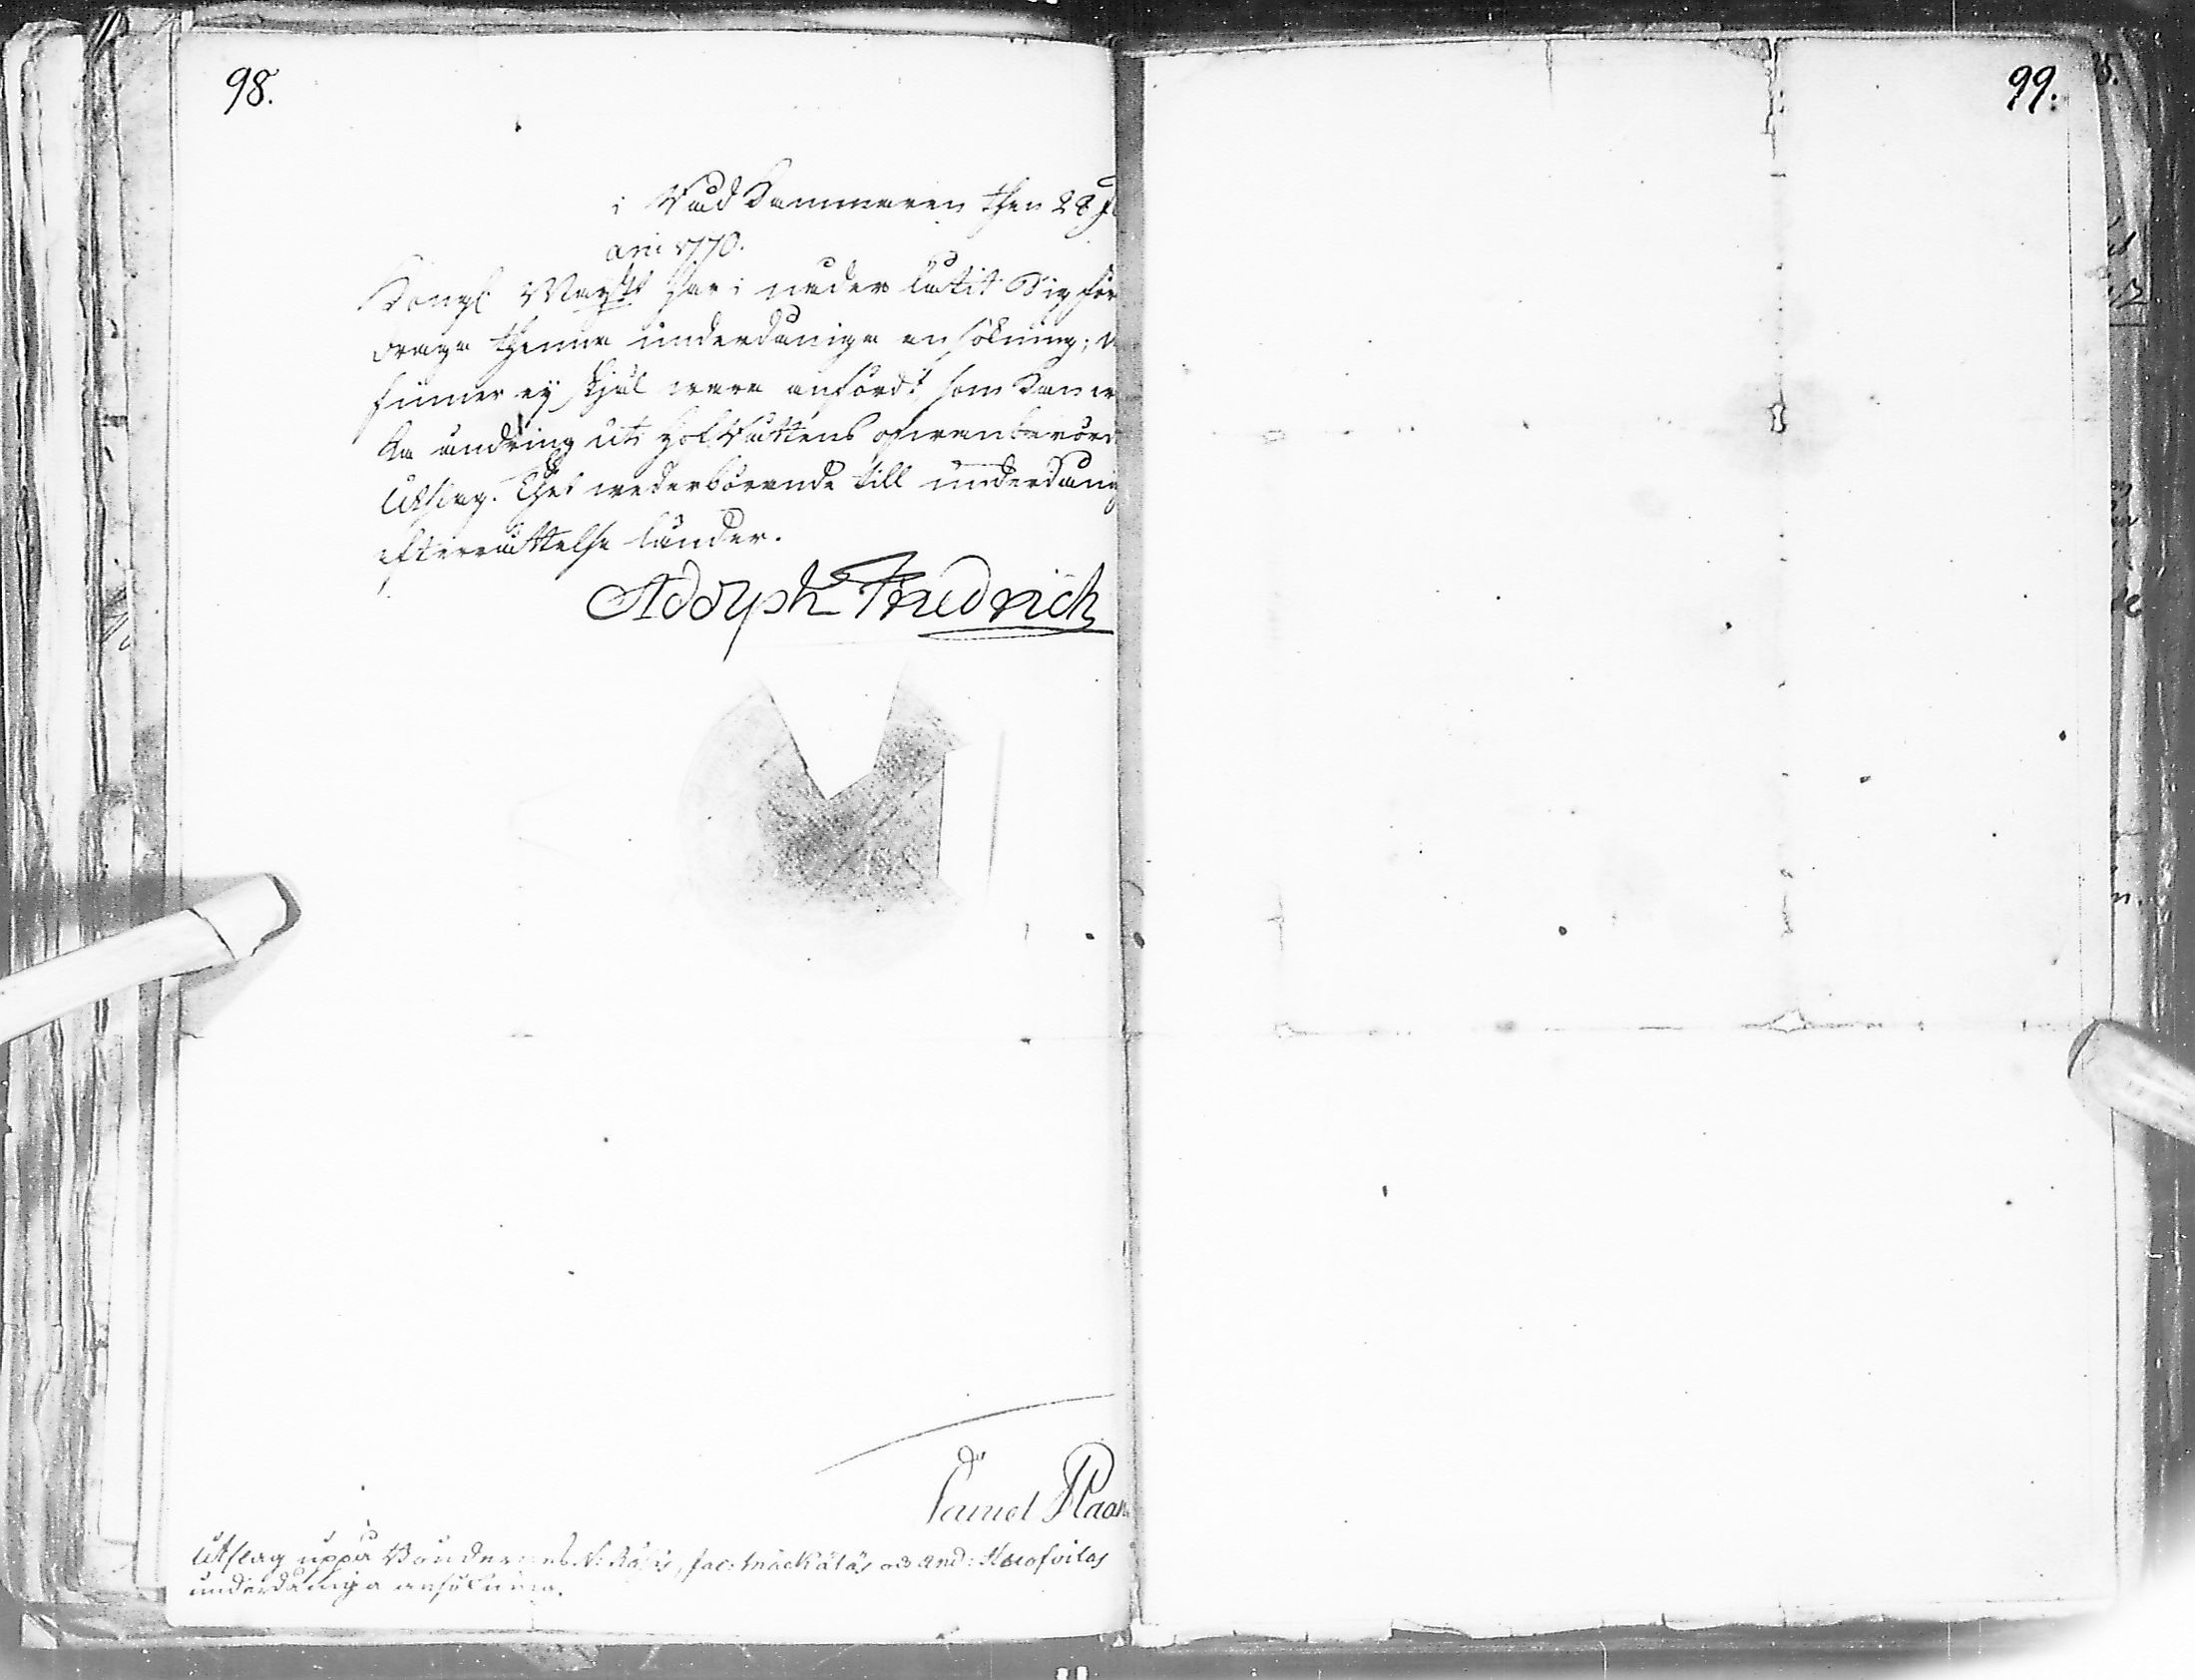 98.
99.
i Råd Kammaren then 28 J
ari 1770.
Kongl Maytt har i nåder låtit Sig före
draga thenna underdåniga ansökning; 
finner ej skjäl wara anfördt som kan 
ka ändring uti HofRättens ofwanberörd
Utslag. Thet wederbörande till underdånig
efterrättelse länder.
Adolph Friedrich
Samuel
Utslag uppå Böndernes
underdåniga ansökning.